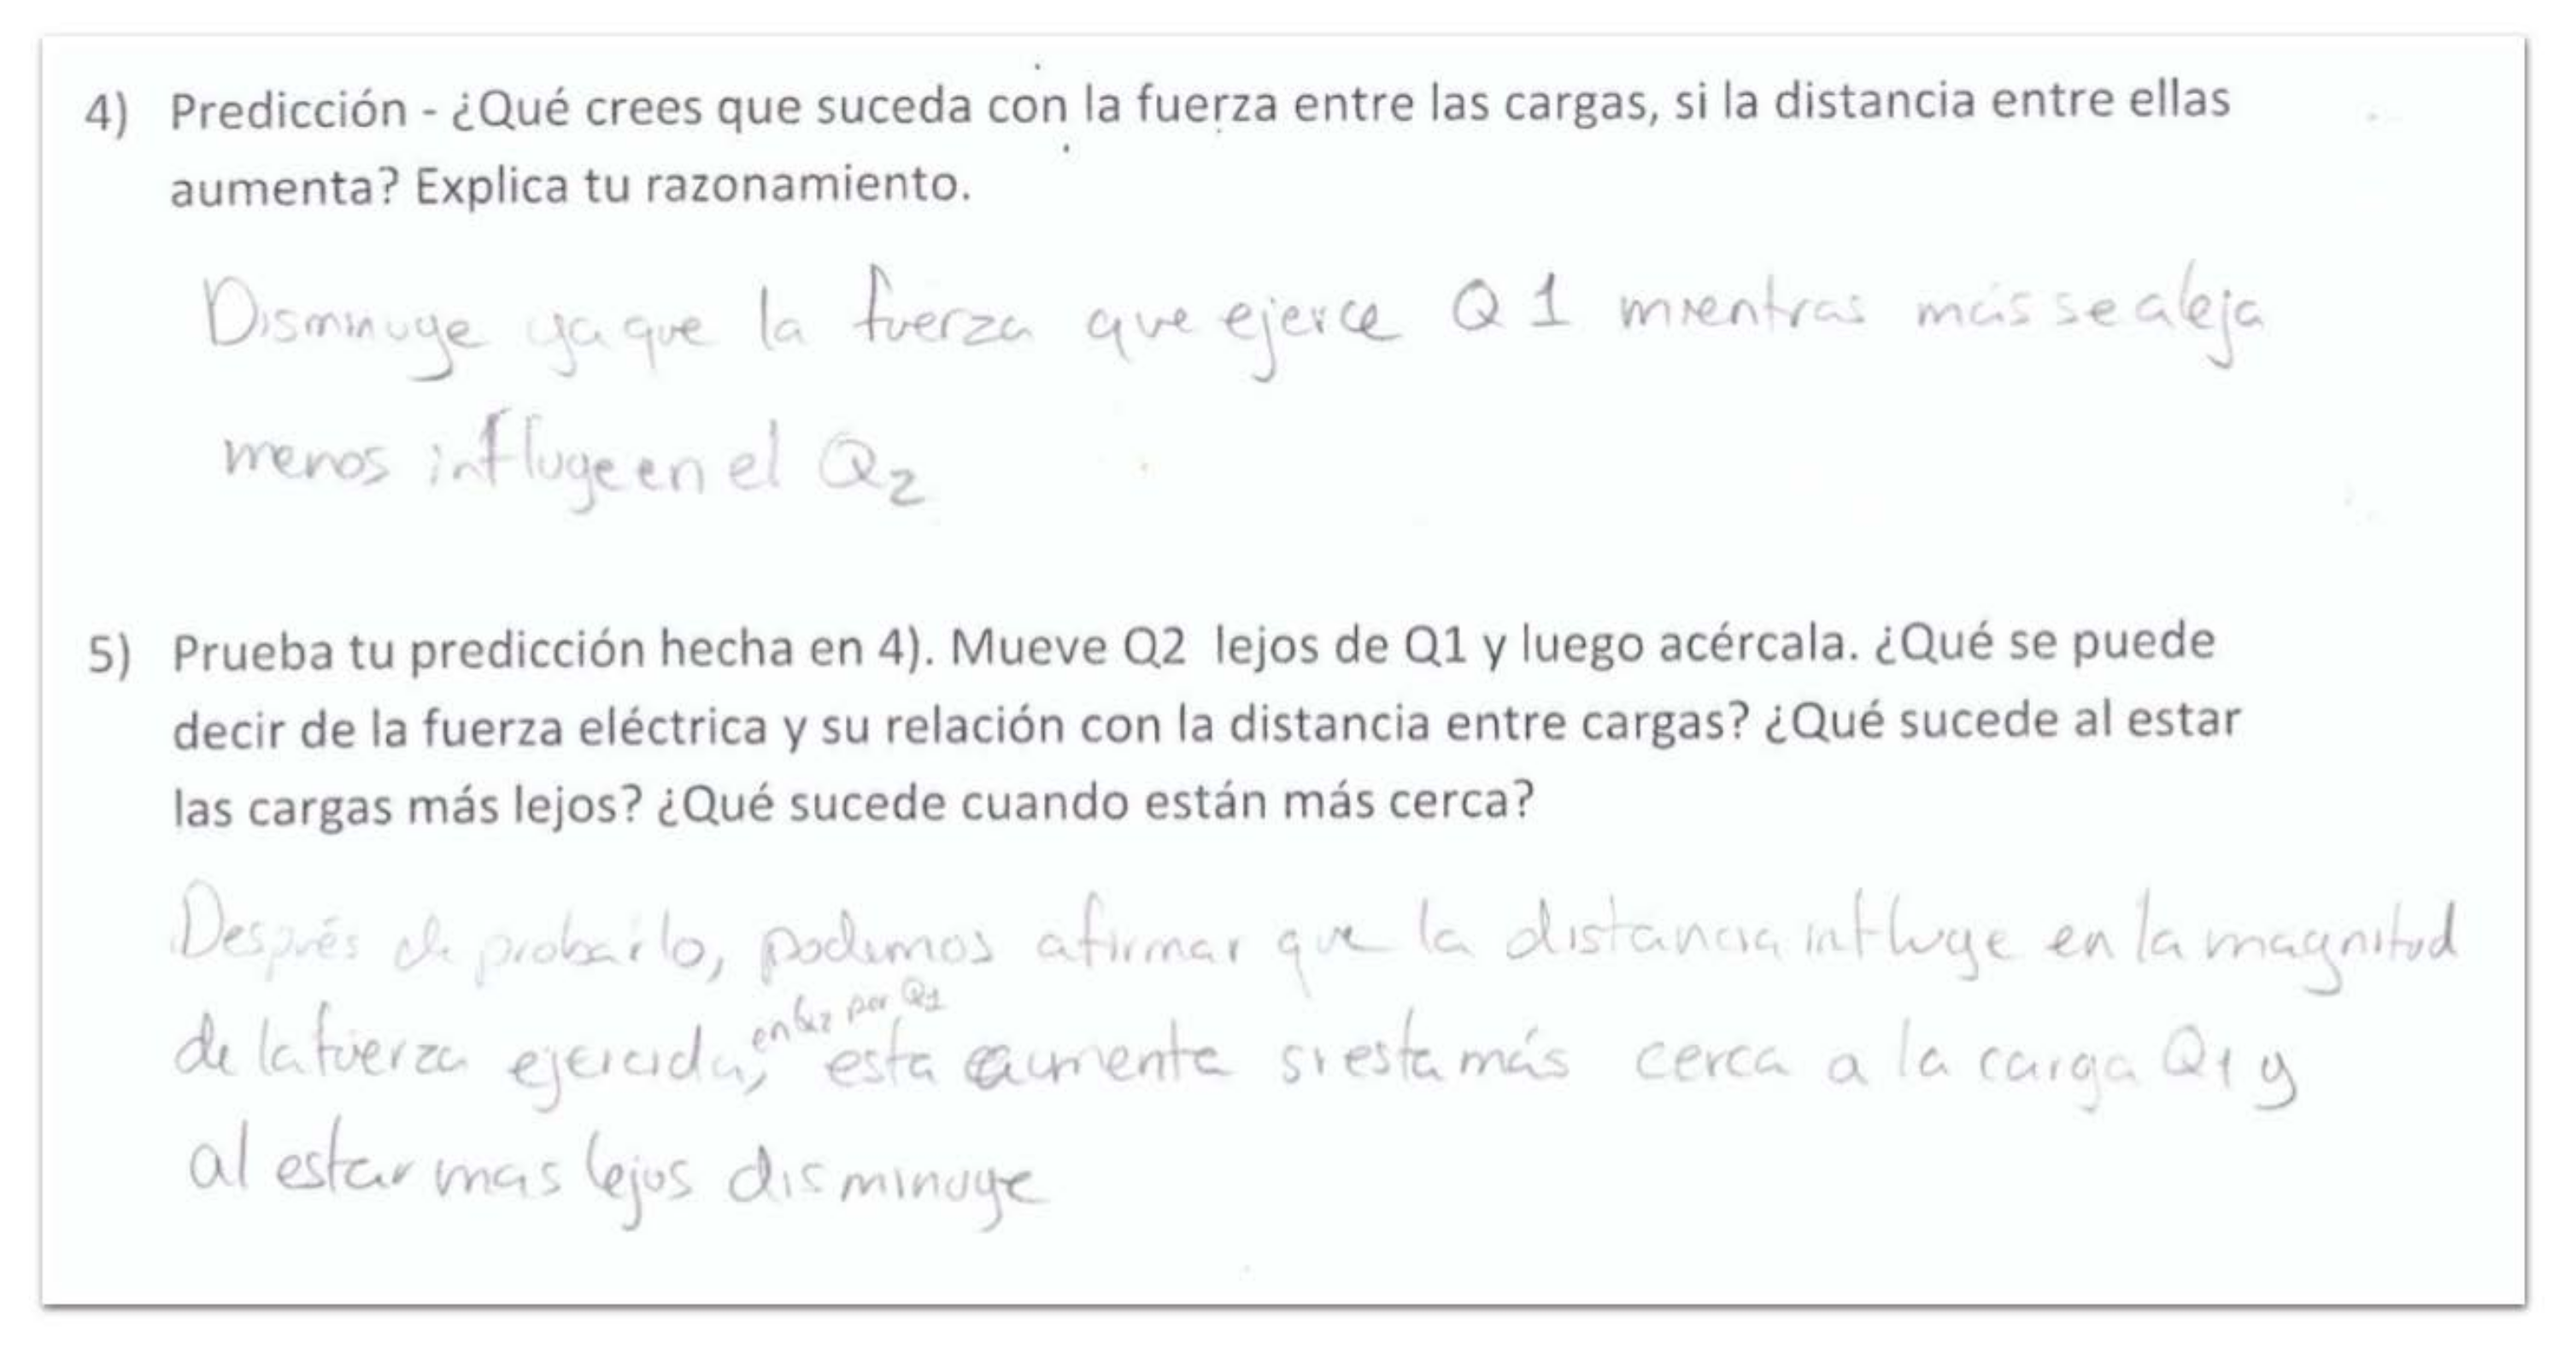 4) Predicción - ¿Qué crees que suceda con la fuerza entre las cargas, si la distancia entre ellas
aumenta? Explica tu razonamiento.
Disminuye ya que la fuerza que ejerce Q1 mientras más se aleja
menos influye en el Q2
5) Prueba tu predicción hecha en 4). Mueve Q2 lejos de Q1 y luego acércala. ¿Qué se puede
decir de la fuerza eléctrica y su relación con la distancia entre cargas? ¿Qué sucede al estar
las cargas más lejos? ¿Qué sucede cuando están más cerca?
Después de probarlo, podemos afirmar que la distancia influye en la magnitud
por Q1
de la fuerza ejercida, esta aumenta si esta más cerca a la carga Q1 y
al estar mas lejos disminuye